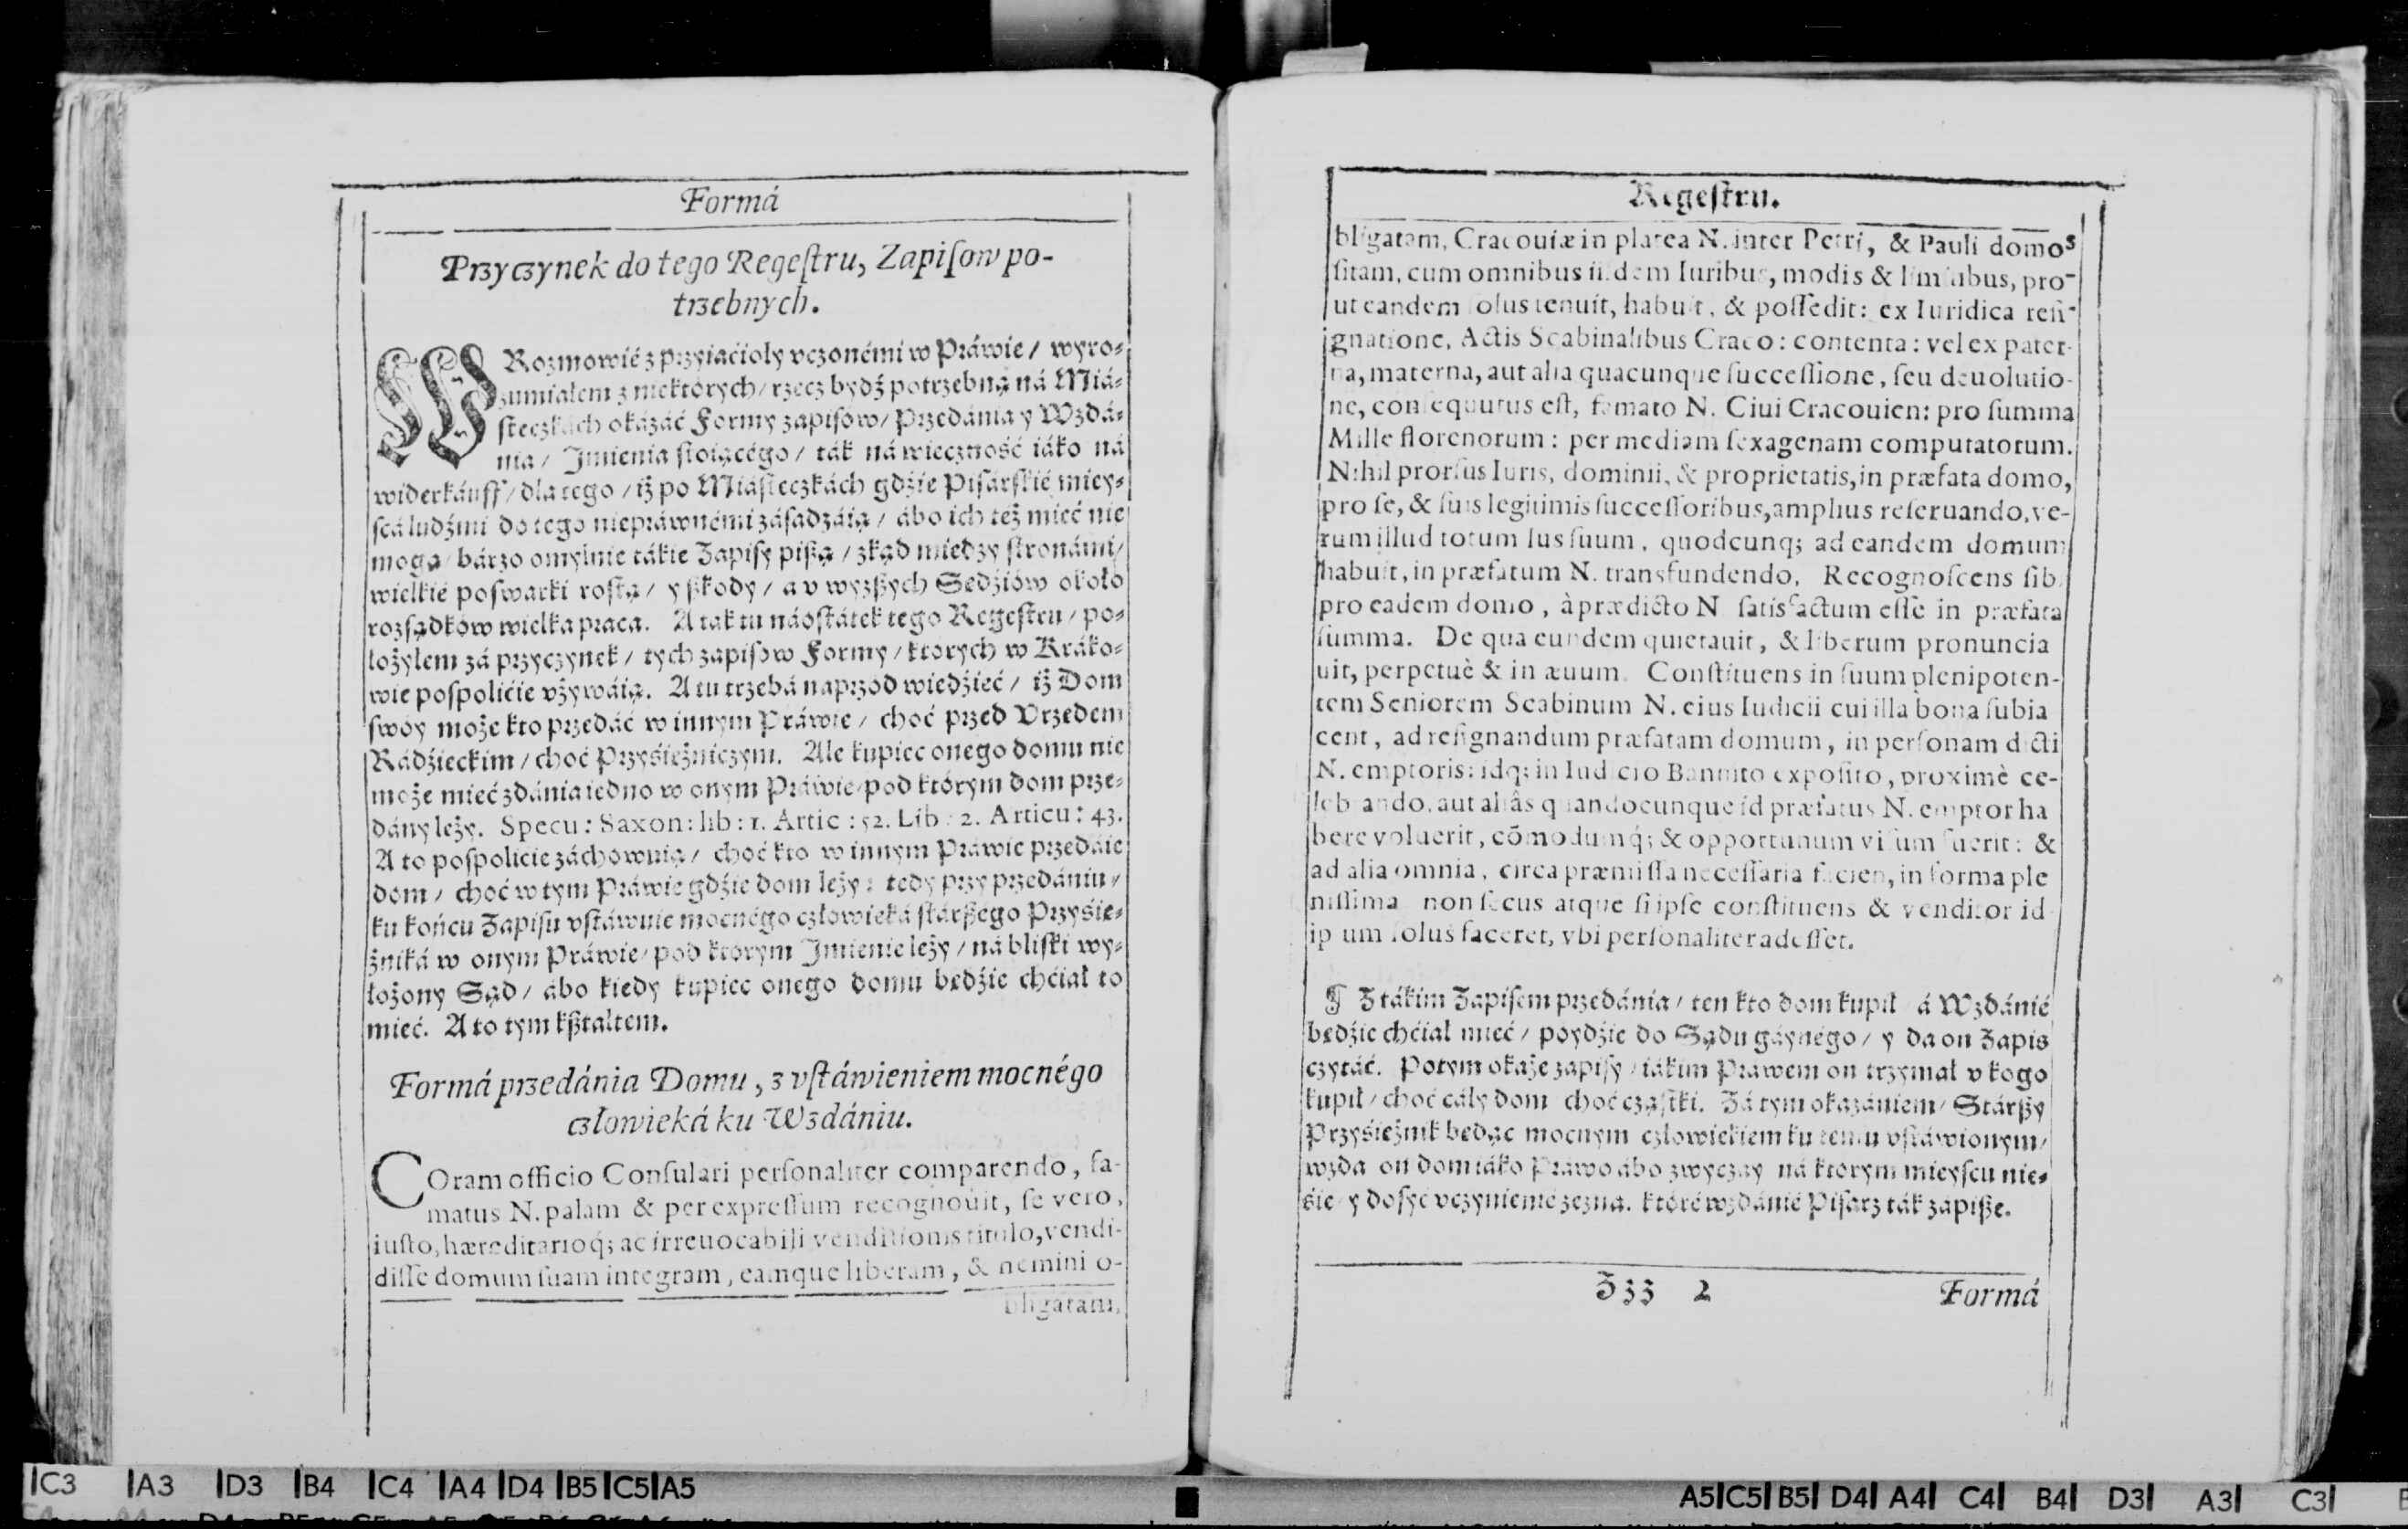 Formá
Przyczynek do tego Regeſtru, Zapiſow po-
trzebnych.
W Rozmowié z przyiaćioły vczonémi w Práwie / wyro-
zumiałem z niektórych / rzecz bydź potrzebną ná Miá-
ſteczkách okázáć Formy zapiſów / Przedánia y Wzdá-
nia / Imienia ſtoiącégo / ták ná wieczność iáko ná
widerkáuff / dla tego / iż po Miáſteczkách gdźie Piſárſkié miey-
ſcá ludźmi do tego niepráwnémi záſadzáią / ábo ich też mieć nie
mogą / bárzo omylnie tákie Zapiſy piſzą / zkąd miedzy ſtronámi /
wielkié poſwarki roſtą / y ſzkody / a v wyzſzych Sędźiów około
rozſądków wielka praca. A tak tu náoſtátek tego Regeſtru / po-
łożyłem zá przyczynek / tych zapiſów Formy / których w Kráko-
wie poſpolićie vżywáią. A tu trzebá naprzód wiedźieć / iż Dom
ſwóy może kto przedáć w innym Práwie / choć przed Vrzędem
Rádźieckim / choć Przyśiężniczym. Ale kupiec onego domu nie
może mieć zdánia iedno w onym Práwie / pod którym dom prze-
dány leży. Specu: Saxon: lib: 1. Artic: 52. Lib: 2. Articu: 43.
A to poſpolicie záchowuią / choć kto w innym Práwie przedáie
dom / choć w tym Práwie gdźie dom leży: tedy przy przedániu /
ku końcu Zapiſu vſtáwuie mocnégo człowieká ſtárſzégo Przyśię-
żniká w onym Práwie / pod którym Imienie leży / ná bliſki wy-
łożony Sąd / ábo kiedy kupiec onego domu będźie chćiał to
mieć. A to tym kſztaltem.
Formá przedánia Domu, z vſtáwieniem mocnégo
człowieká ku Wzdániu.
COram officio Conſulari perſonaliter comparendo, fa-
matus N. palam & per expreſſum recognouit, ſe vero,
iuſto, hæreditarioq́; ac irreuocabili venditionis titulo, vendi-
diſſe domum ſuam integram, eamque liberam, & nemini o-
bligatam,
Regeſtru.
bligatam, Cracouiæ in platea N. inter Petri, & Pauli domos
ſitam, cum omnibus iiſdem Iuribus, modis & limitibus, pro-
ut eandem ſolus tenuit, habuit, & poſſedit: ex Iuridica reſi-
gnatione, Actis Scabinalibus Craco: contenta: vel ex pater-
na, materna, aut alia quacunque ſucceſſione, ſeu deuolutio-
ne, conſequutus eſt, famato N. Ciui Cracouien: pro ſumma
Mille florenorum: per mediam ſexagenam computatorum.
Nihil prorſus Iuris, dominii, & proprietatis, in præfata domo,
pro ſe, & ſuis legitimis ſucceſſoribus, amplius reſeruando, ve-
rum illud totum Ius ſuum, quodcunq; ad eandem domum
habuit, in præfatum N. transfundendo, Recognoſcens ſib
pro eadem domo, à prædicto N ſatisfactum eſſe in præfata
ſumma. De qua eundem quietauit, & liberum pronuncia
uit, perpetuè & in æuum. Conſtituens in ſuum plenipoten-
tem Seniorem Scabinum N. eius Iudicii cui illa bona ſubia
cent, ad reſignandum præfatam domum, in perſonam dicti
N. emptoris: idq; in Iudicio Bannito expoſito, proximè ce-
lebrando, aut aliâs quandocunque id præfatus N. emptor ha
bere voluerit, cõmodumq́; & opportunum viſum fuerit: &
ad alia omnia, circa præmiſſa neceſſaria facien, in forma ple
niſſima non ſecus atque ſi ipſe conſtituens & venditor id
ipſum ſolus faceret, vbi perſonaliter adeſſet.
¶ Z tákim Zapiſem przedánia / ten kto dom kupił á Wzdánié
będźie chćiał mieć / poydźie do Sądu gáynégo / y da on Zapis
czytáć. Potym okaże zapiſy / iákim Práwem on trzymał v kogo
kupił / choć cáły dom choć cząſtki. Zá tym okazániem / Stárſzy
Przyśiężnik będąc mocnym człowiekiem ku temu vſtáwionym /
wzda on dom iáko Práwo ábo zwyczay ná którym mieyſcu nie-
śie / y doſyć vczynienié zezna. które wzdánié Piſarz ták zapiſze.
Zzz 2
Formá
C3 A3 D3 B4 C4 A4 D4 B5 C5 A5
A5 C5 B5 D4 A4 C4 B4 D3 A3 C3